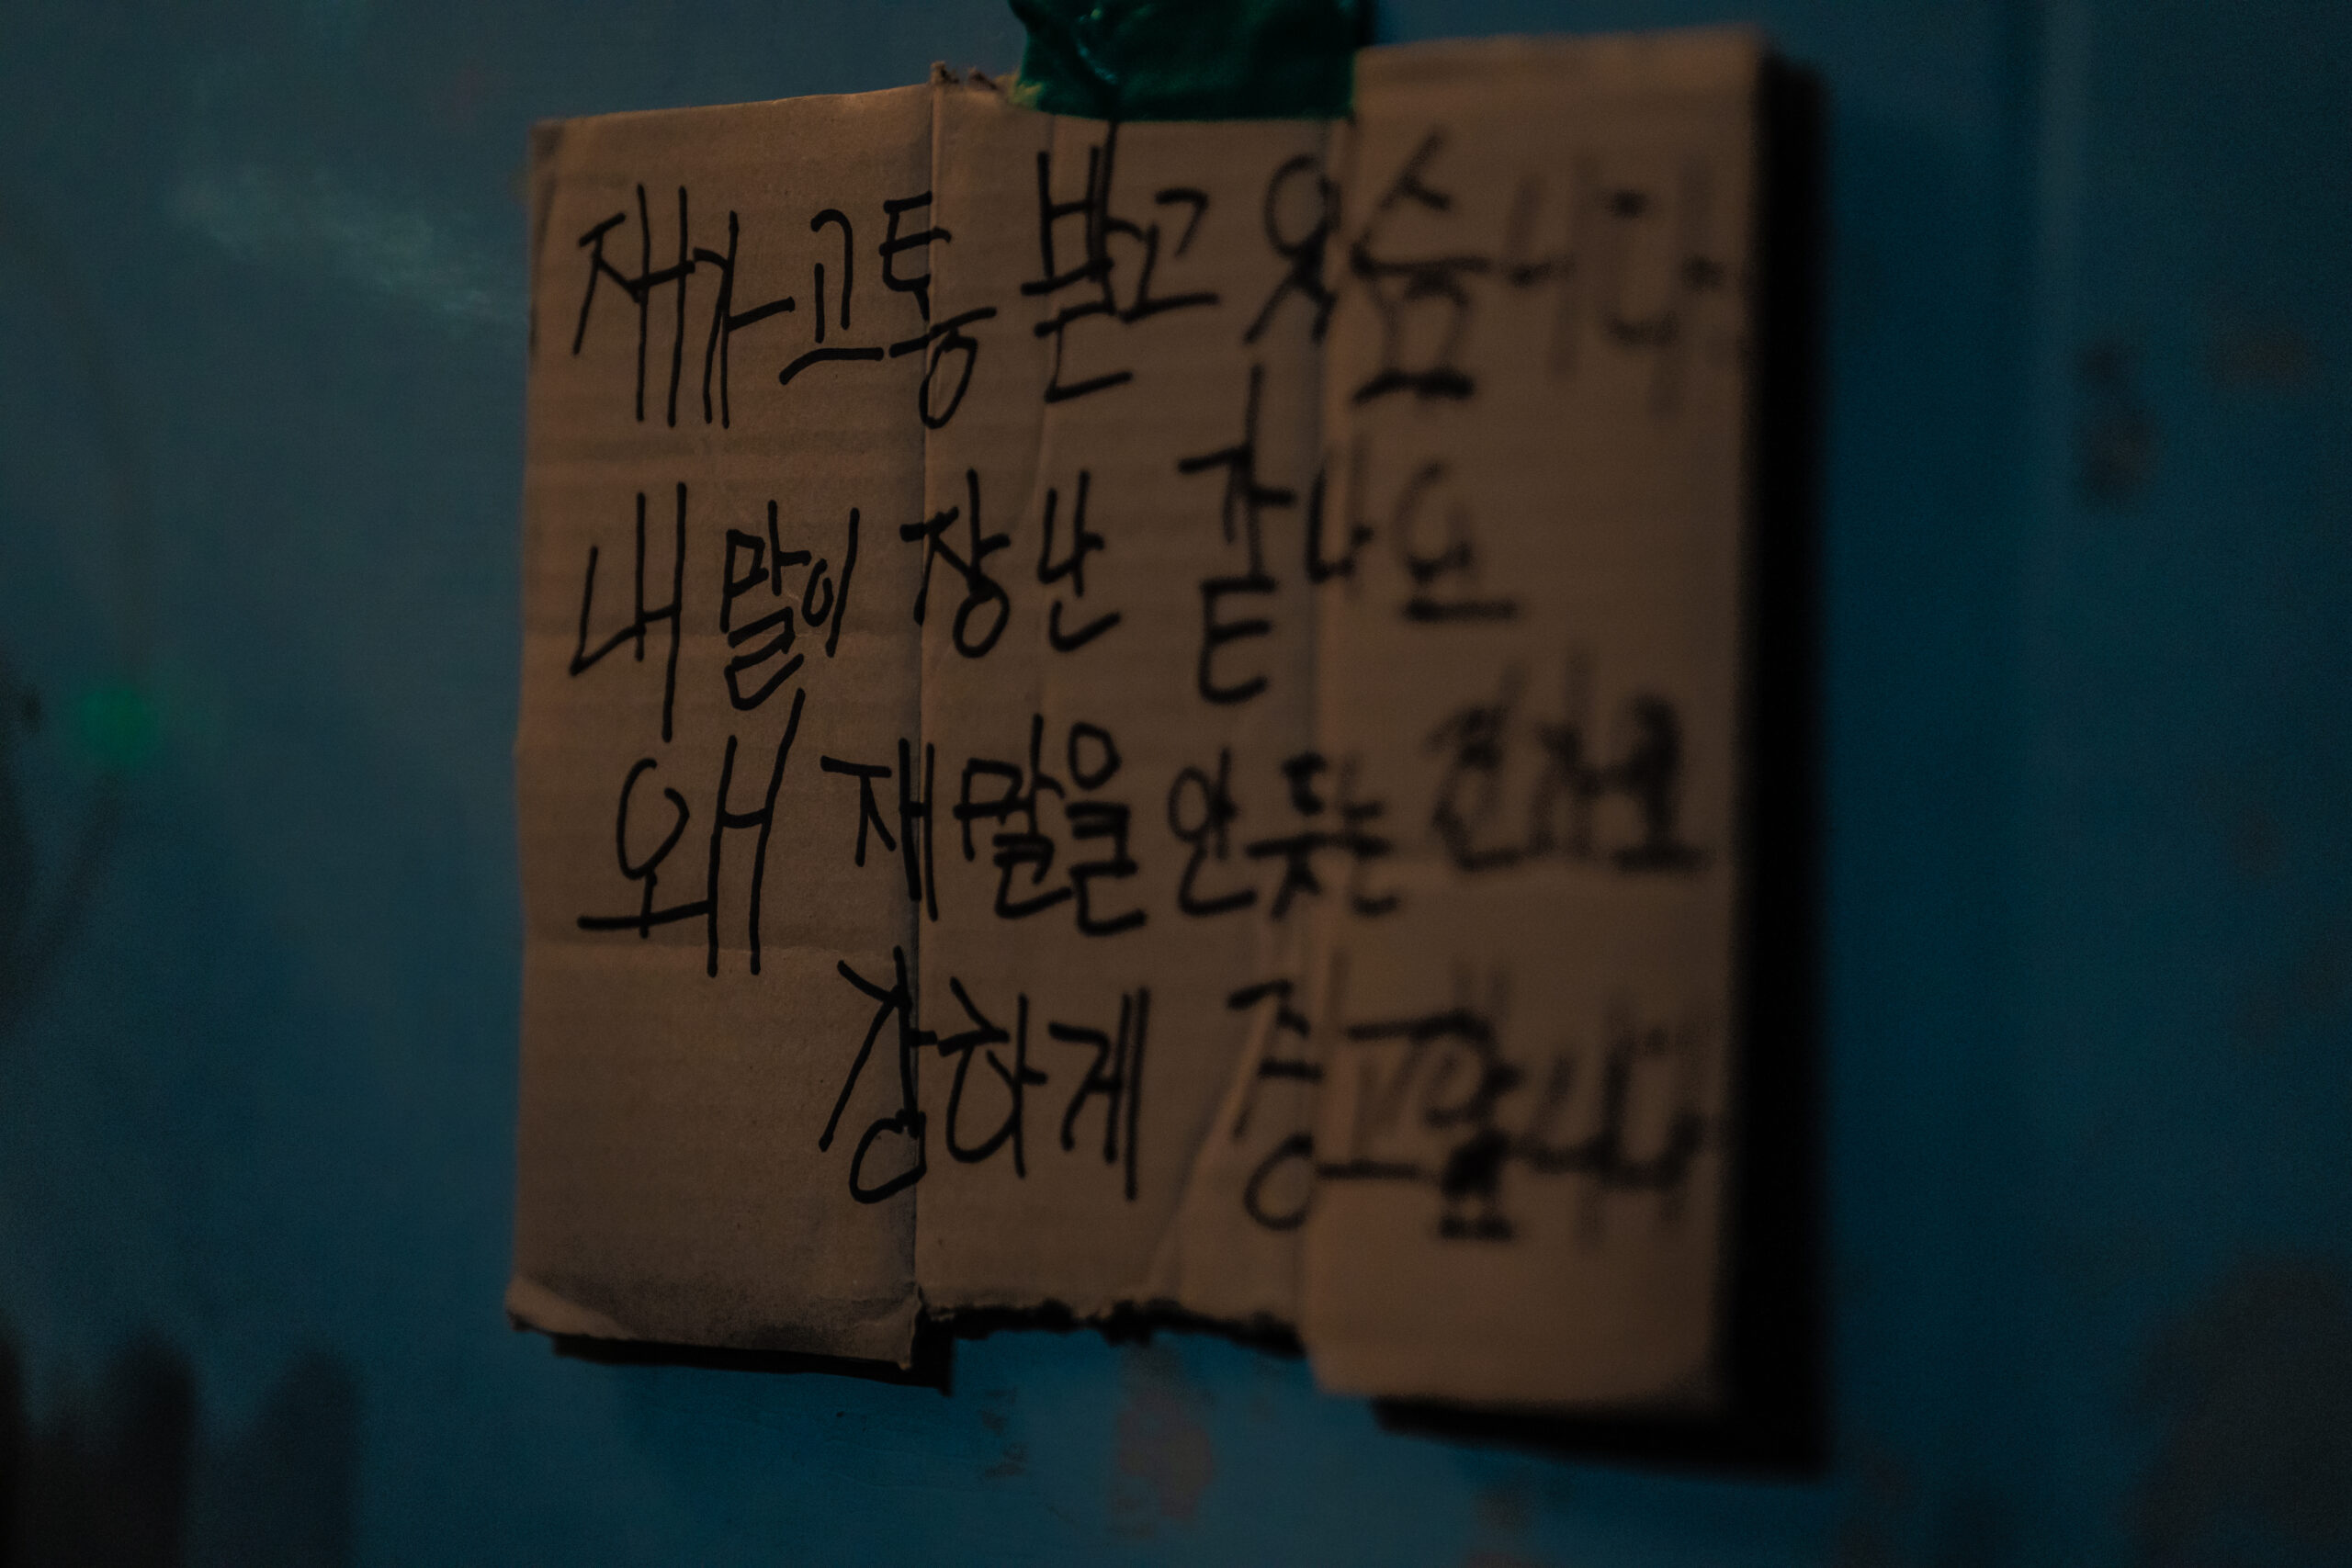 재가 고통 받고 있습니다
내 말이 장난 같나요
왜 재 말을 안 듯는 건가요
강하게 증폭합니다